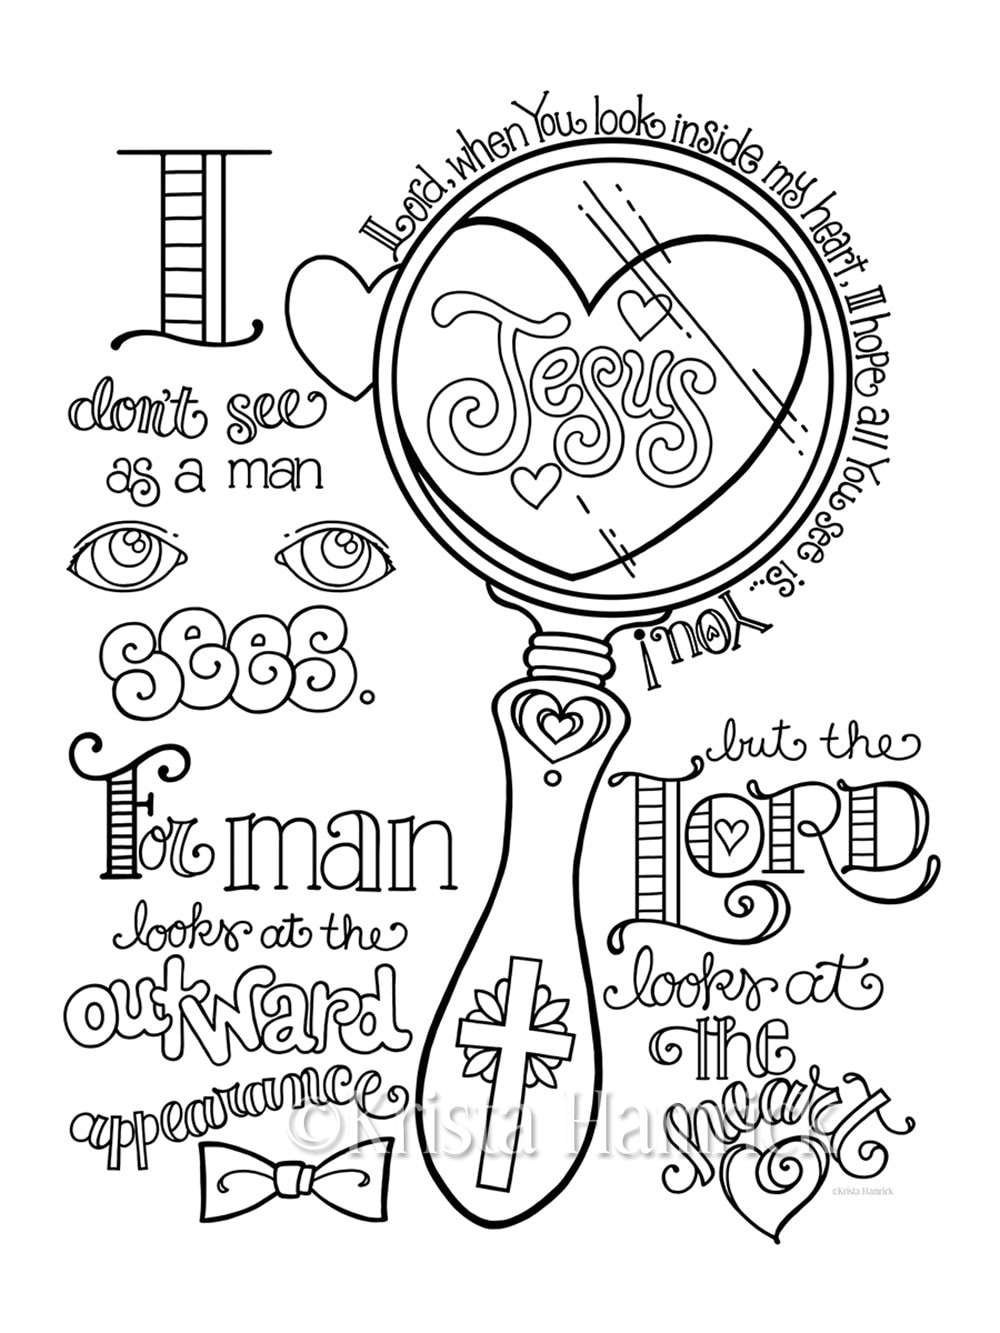 I
don't see
as a man
sees.
For man
looks at the
outward
appearance
but the
LORD
looks at
THE
heart
Lord, when You look inside my heart, I hope all You see is... You!
Jesus
©Krista Hamrick
©Krista Hamrick